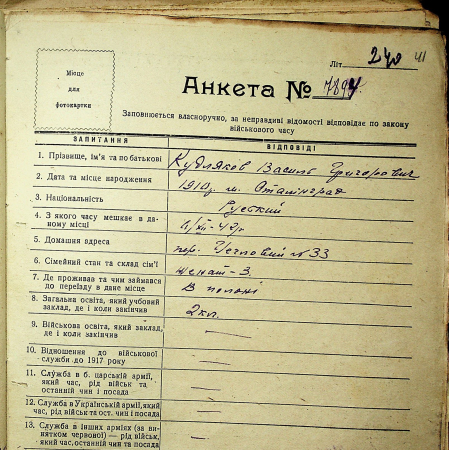 Літ. 240 41
Місце
для
фотокартки
Анкета № 7894
Заповнюється власноручно, за неправдиві відомості відповідає по закону
військового часу
ЗАПИТАННЯ ВІДПОВІДІ
1. Прізвище, ім'я та по батькові Кудляков Василь Григорович
2. Дата та місце народження 1910 р. м. Сталінград
3. Національність Руский
4. З якого часу мешкає в даному місці
5. Домашня адреса пер. № 33
6. Сімейний стан та склад сім'ї женат - 3
7. Де проживав та чим займався
до переїзду в дане місце В полоні
8. Загальна освіта, який учбовий
заклад, де і коли закінчив 2 кл.
9. Військова освіта, який заклад,
де і коли закінчив —
10. Відношення до військової
служби до 1917 року —
11. Служба в б. царській армії,
який час, рід військ та
останній чин і посада —
12. Служба в Українській армії, який
час, рід військ та ост. чин і посада —
13. Служба в інших арміях (за ви-
нятком червоної) — рід військ,
який час, останній чин та посада —